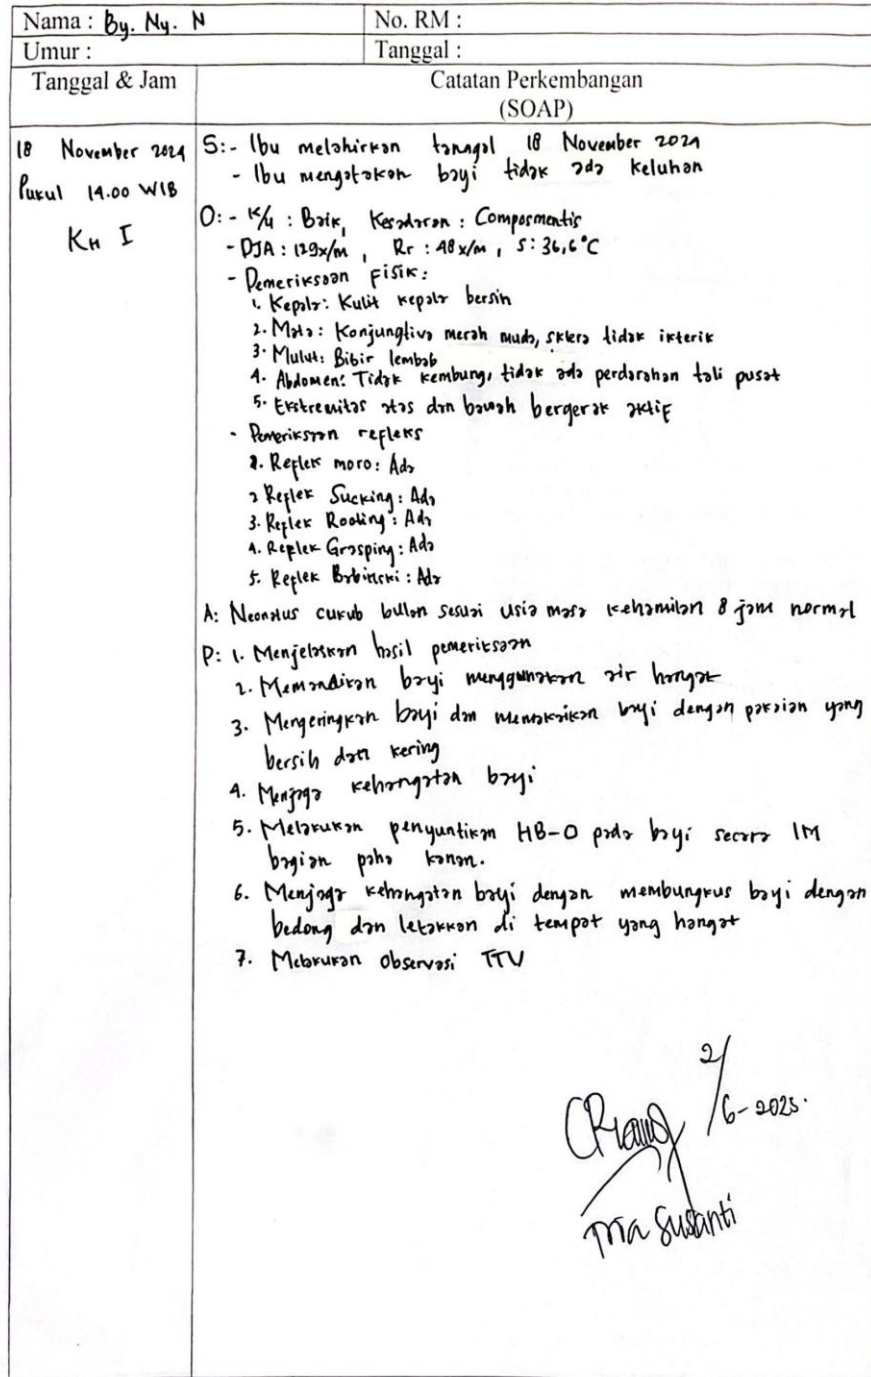 Nama : By. Ny. N No. RM :
Umur : Tanggal :
Tanggal & Jam Catatan Perkembangan
(SOAP)
18 November 2024
Pukul 14.00 WIB
KN I
S:- Ibu melahirkan tanggal 18 November 2024
- Ibu mengatakan bayi tidak ada keluhan
O:- K/U : Baik, Kesadaran : Composmentis
- DJA : 129x/m, Rr : 48x/m, S: 36,6°C
- Pemeriksaan Fisik:
1. Kepala: Kulit kepala bersih
2. Mata: Konjungtiva merah muda, sklera tidak ikterik
3. Mulut: Bibir lembab
4. Abdomen: Tidak kembung, tidak ada perdarahan tali pusat
5. Ekstremitas atas dan bawah bergerak aktif
- Pemeriksaan refleks
1. Reflek moro: Ada
2 Reflek Sucking: Ada
3. Reflek Rooting: Ada
4. Reflek Grasping: Ada
5. Reflek Babinski: Ada
A: Neonatus cukub bulan sesuai usia masa kehamilan 8 jam normal
P: 1. Menjelaskan hasil pemeriksaan
2. Memandikan bayi menggunakan air hangat
3. Mengeringkan bayi dan memakaikan bayi dengan pakaian yang
bersih dan kering
4. Menjaga kehangatan bayi
5. Melakukan penyuntikan HB-0 pada bayi secara IM
bagian paha kanan.
6. Menjaga kehangatan bayi dengan membungkus bayi dengan
bedong dan letakkan di tempat yang hangat
7. Melakukan observasi TTV
2/6-2025.
Susanti